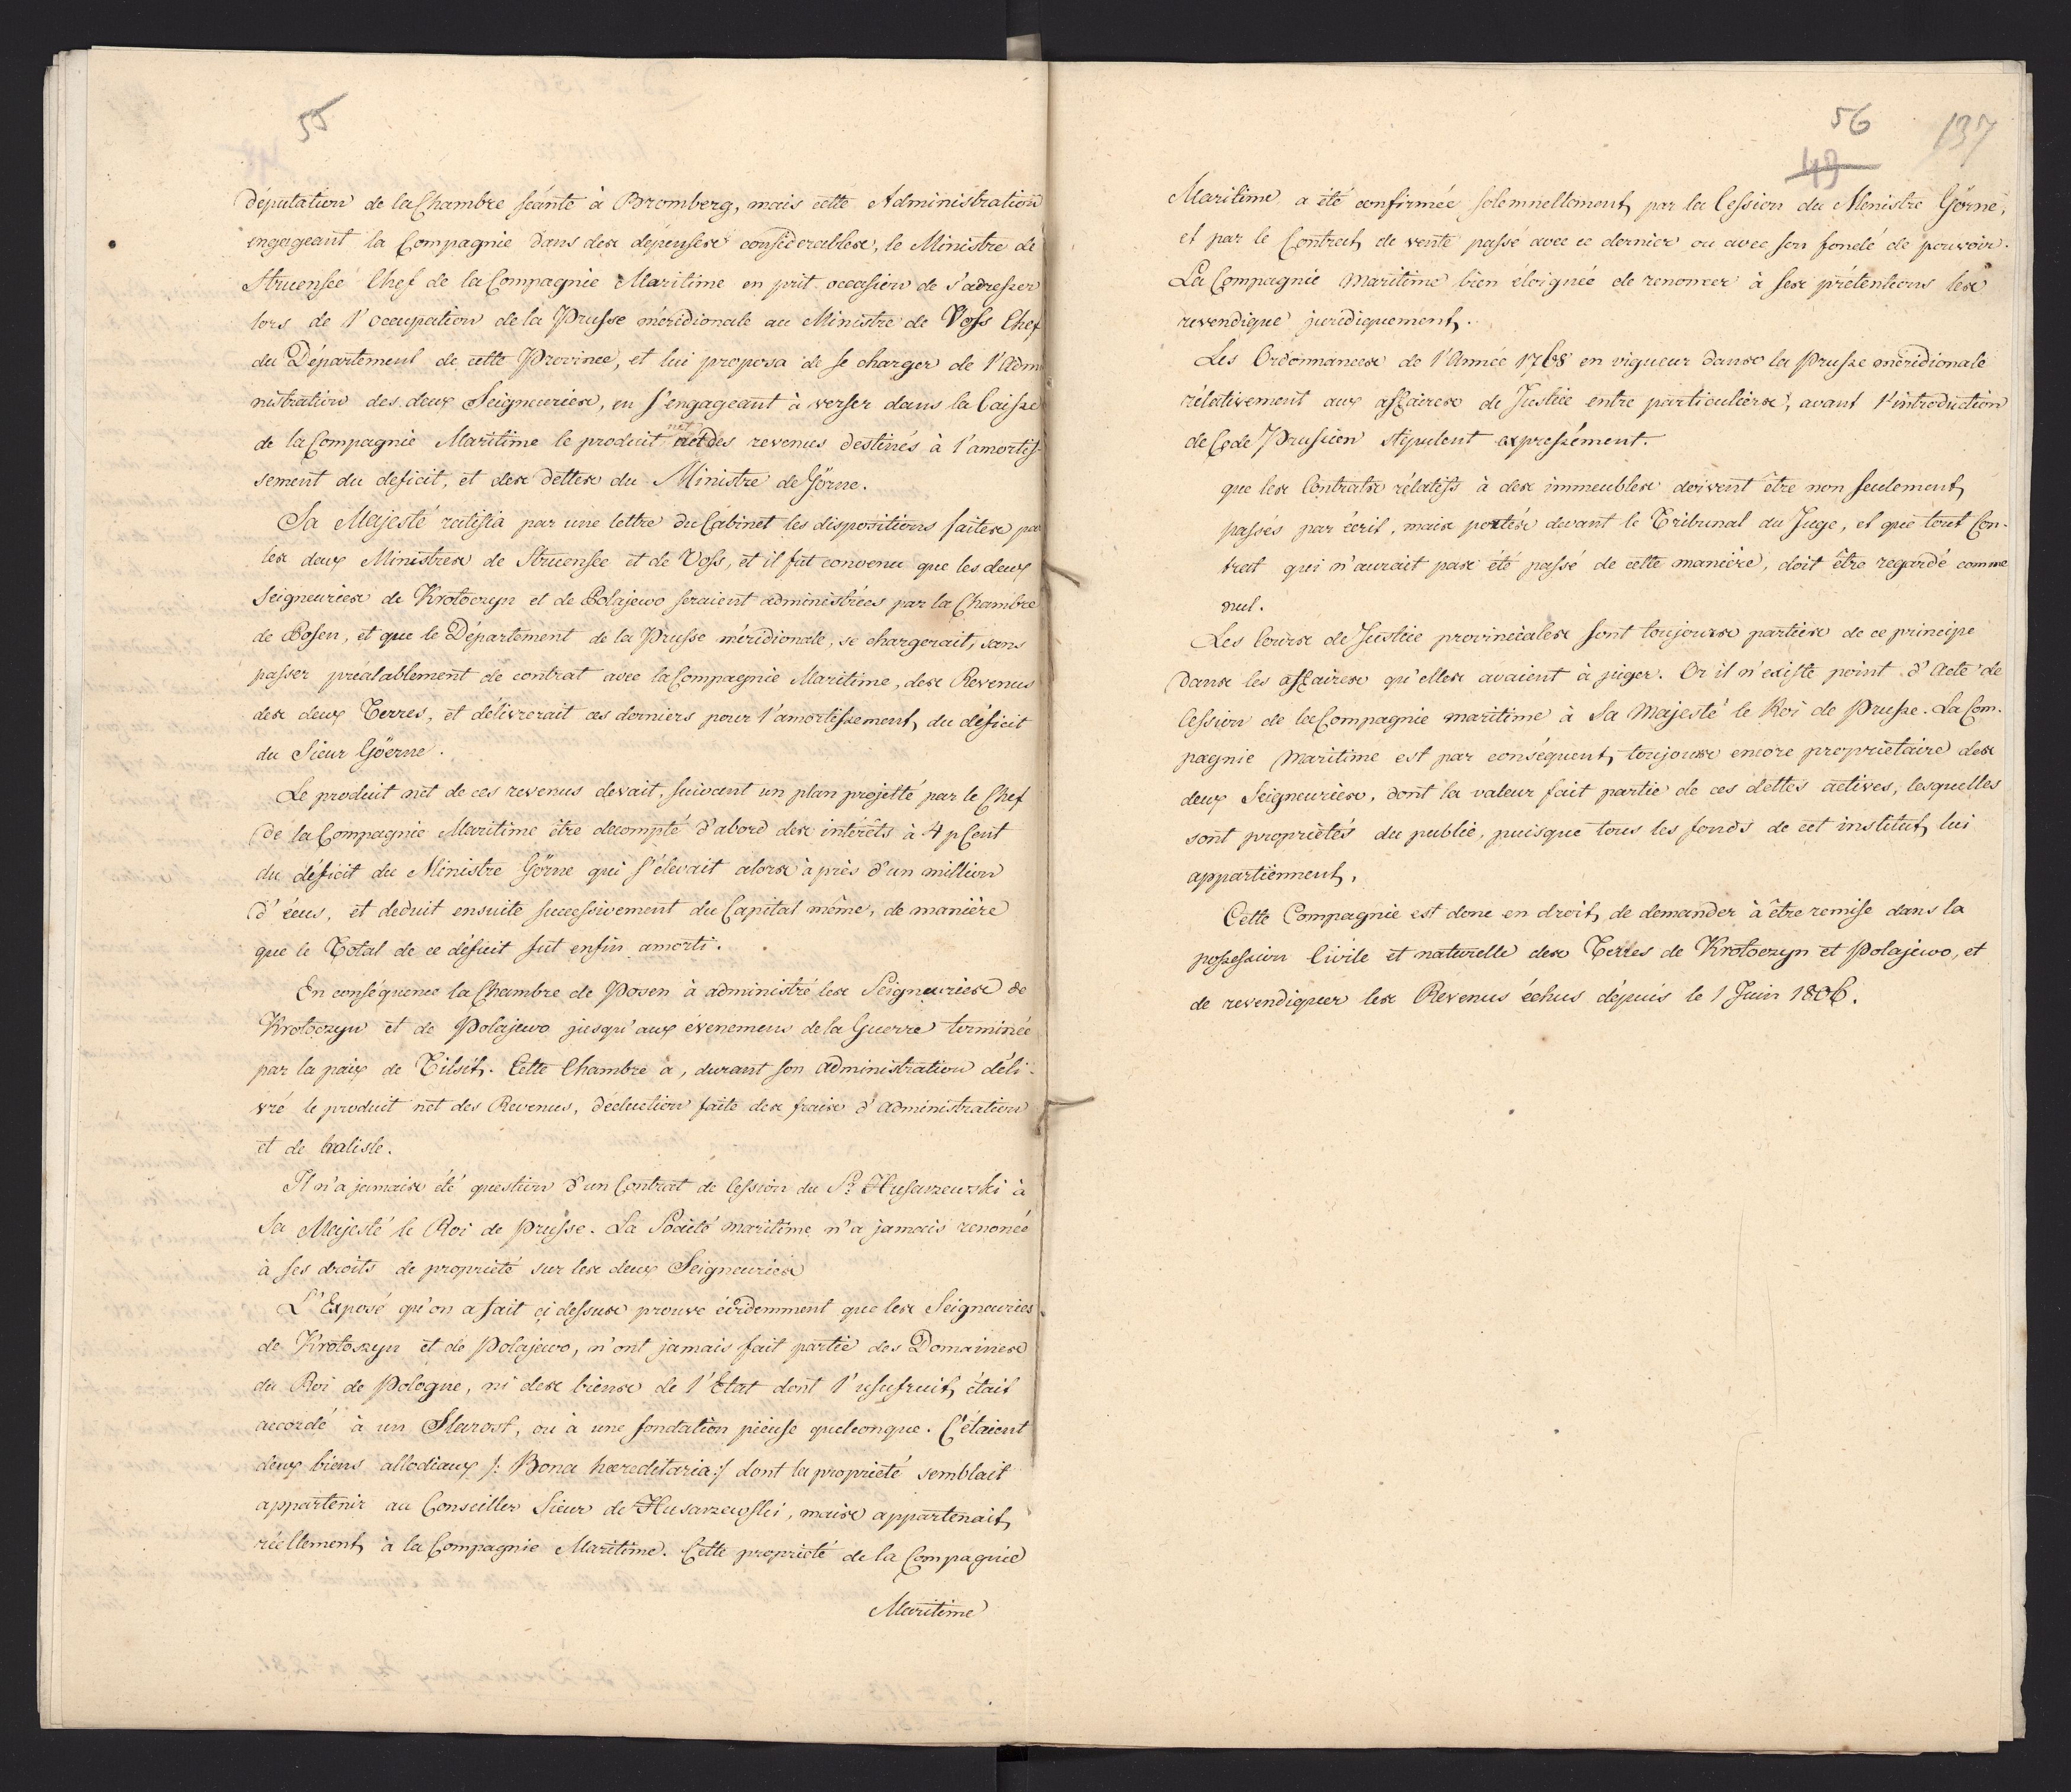 55
députation de la Chambre séante à Bromberg, mais cette Administration
engageant la Compagnie dans des dépenses considerables, le Ministre de
Struensée Chef de la Compagnie Maritime en prit occasion de s'adresser
lors de l'occupation de la Prusse méridionale au Ministre de Voss Chef
du Département de cette Province, et lui proposa de se charger de l'Admi
nistration des deux Seigneuries, en s'engageant à verser dans la Caisse
de la Compagnie Maritime le produit net des revenus destinés à l'amortis-
sement du deficit, et des dettes du Ministre de Görne.
Sa Majesté ratifia par une lettre du Cabinet les dispositions faites par
les deux Ministres de Struensee et de Voss, et il fut convenu que les deux
Seigneuries de Krotoczyn et de Polajewo seraient administrées par la Chambre
de Posen, et que le Département de la Prusse méridionale, se chargerait, sans
passer préalablement de contrat avec la Compagnie Maritime, des Revenus
des deux Terres, et délivrerait ces derniers pour l'amortissement, du déficit
du Sieur Göerne.
Le produit net de ces revenus devait, suivant un plan projetté par le Chef
de la Compagnie Maritime être decompté d'abord des intérêts à 4 p Cent
du déficit du Ministre Görne qui s'élevait alors à près d'un million
d'écus, et deduit ensuite successivement du Capital même, de manière
que le Total de ce déficit fut enfin amorti.
En conséquence la Chambre de Posen à administré les Seigneuries de
Krotoczyn et de Polajewo jusqu'aux évenemens de la Guerre terminée
par la paix de Tilsit. Cette Chambre à, durant son administration déli-
vré le produit net des Revenus, deduction faite des frais d'administration
et de baliste.
Il n'a jamais été question d'un Contrat de Cession du Sr. Husarzewski à
Sa Majesté le Roi de Prusse. La Société maritime n'a jamais renoncé
à ses droits de propriété sur les deux Seigneuries
L'Exposé qu'on a fait ci dessus prouve évidemment que les Seigneuries
de Krotoszyn et de Polajewo, n'ont jamais fait partie des Domaines
du Roi de Pologne, ni des biens de l'Etat dont l'usufruit, était
accordé à un Starost, ou à une fondation pieuse quelconque. C'étaient
deux biens allodiaux /: Bona hæreditaria :/ dont la propriété semblait
appartenir au Conseiller Sieur de Husarzewski, mais appartenait,
réellement, à la Compagnie Maritime. Cette propriété de la Compagnie
Maritime
56
137
49
Maritime a été confirmée solemnellement, par la Cession du Ministre Görne,
et par le Contrat, de vente passé avec ce dernier ou avec son fondé de pouvoir.
La Compagnie maritime bien éloignée de renoncer à ses prétentions les
revendique juridiquement.
Les Ordonnances de l'Année 1768 en vigueur dans la Prusse méridionale
rélativement aux affaires de Justice entre particuliers, avant l'introduction
de Code Prussien stipulent expressément.
que les Contrats rélatifs à des immeubles doivent être non seulement,
passés par écrit, mais portés devant le Tribunal du Juge, et que tout Con-
trat qui n'aurait pas été passé de cette manière, doit être regardé comme
nul.
Les Cours de Justice provinciales sont toujours parties de ce principe
dans les affaires qu'elles avaient à juger. Or il n'existe point d'Acte de
Cession de la Compagnie maritime à Sa Majesté le Roi de Prusse. La Com-
pagnie maritime est par conséquent, toujours encore proprietaire des
deux Seigneuries, dont la valeur fait partie de ces dettes actives, lesquelles
sont propriétés du public, puisque tous les fonds de cet institut, lui
appartiennent.
Cette Compagnie est donc en droit, de demander à être remise dans la
possession Civile et naturelle des Terres de Krotoczyn et Polajewo, et
de revendiquer les Revenus échus dépuis le 1 Juin 1806.